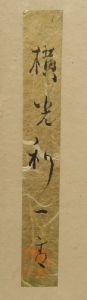 横光利一書